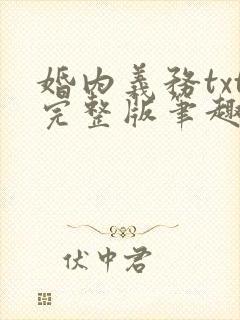 婚内義務txt
完整版筆趣
伏中君